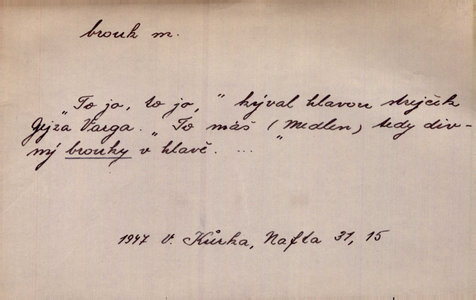 brouk m.
„To jo, to jo,“ kýval hlavou strejček
Gejza Varga. „To máš (Medlen) tedy div-
ný brouky v hlavě. ...“
1947 V. Kůrka, Nafta 31, 15